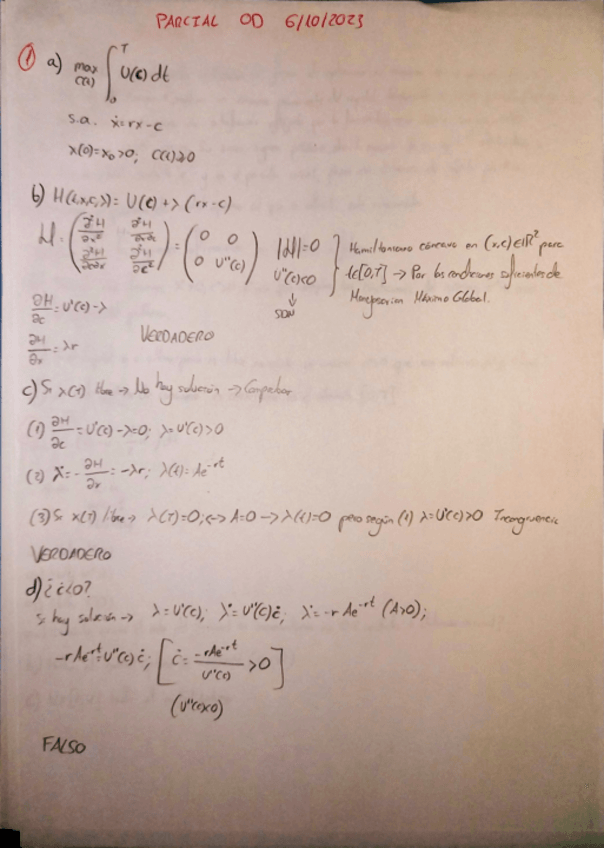 PARCIAL OD 6/10/2023
① a) max ∫ U(c) dt
C(t) 0 T
s.a. ẋ=rx-c
x(0)=x₀>0; C(t)≥0
b) H(t,x,c,λ)= U(c)+λ(rx-c)
H = (∂²H/∂x² ∂²H/∂x∂c ; ∂²H/∂c∂x ∂²H/∂c²) = (0 0 ; 0 U''(c)) |H|=0 U''(c)<0 ↓ SDN } Hamiltoniano cóncavo en (x,c)∈ℝ² para
t∈[0,T] → Por las condiciones suficientes de
Mangasarian Máximo Global.
∂H/∂c = U'(c)-λ
∂H/∂x = λr
VERDADERO
c) Si x(T) libre → No hay solución → Comprobar
(1) ∂H/∂c = U'(c)-λ=0; λ=U'(c)>0
(2) λ̇=-∂H/∂x = -λr; λ(t)=Ae^-rt
(3) Si x(T) libre → λ(T)=0; <-> A=0 → λ(t)=0 pero según (1) λ=U'(c)>0 Incongruencia
VERDADERO
d) ¿ċ<0?
Si hay solución → λ=U'(c); λ̇=U''(c)ċ; λ̇=-rAe^-rt (A>0);
-rAe^-rt=U''(c)ċ; [ċ= -rAe^-rt/U''(c) >0]
(U''(c)<0)
FALSO